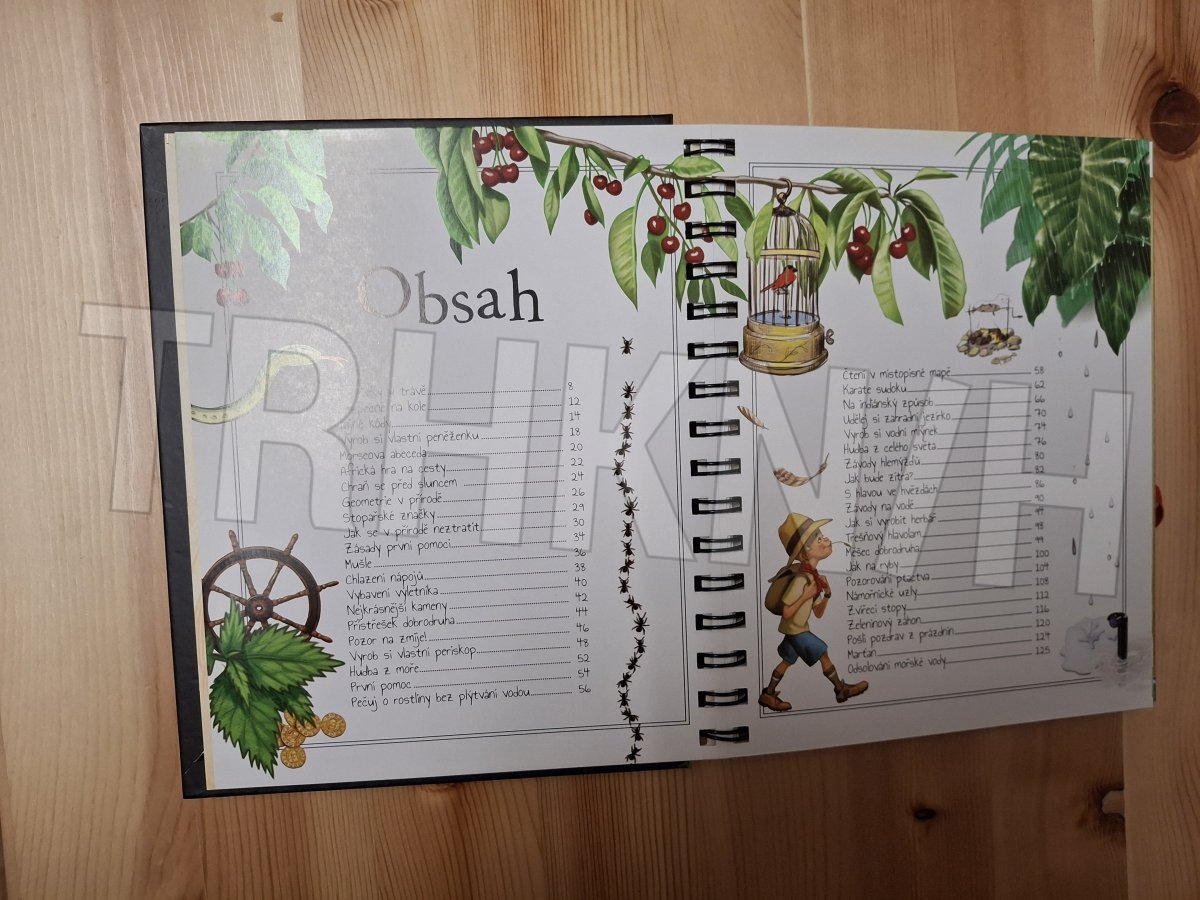 Obsah
v trávě 8
na kole 12
kódy 14
Vyrob si vlastní peněženku 18
Morseova abeceda 20
Africká hra na cesty 22
Chraň se před sluncem 24
Geometrie v přírodě 26
Stopařské značky 29
Jak se v přírodě neztratit 30
Zásady první pomoci 34
Mušle 36
Chlazení nápojů 38
Vybavení výletníka 40
Nejkrásnější kameny 42
Přístřešek dobrodruha 44
Pozor na zmije! 46
Vyrob si vlastní periskop 48
Hudba z moře 52
První pomoc 54
Pečuj o rostliny bez plýtvání vodou 56
Čtení v místopisné mapě 58
Karate sudoku 62
Na indiánský způsob 66
Udělej si zahradní jezírko 70
Vyrob si vodní mlýnek 74
Hudba z celého světa 76
Závody hlemýžďů 80
Jak bude zítra? 82
S hlavou ve hvězdách 86
Závody na vodě 90
Jak si vyrobit herbář 94
Třešňový hlavolam 98
Měšec dobrodruha 99
Jak na ryby 100
Pozorování ptactva 104
Námořnické uzly 108
Zvířecí stopy 112
Zeleninový záhon 116
Pošli pozdrav z prázdnin 120
Marťan 124
Odsolování mořské vody 125
TRHKNIH